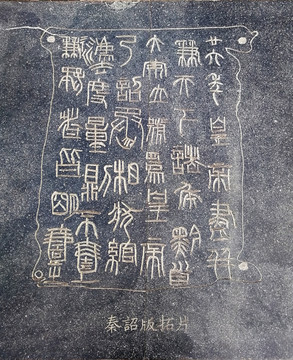 廿六年皇帝盡并
兼天下諸侯黔首
大安立號為皇帝
乃詔丞相狀綰
灋度量則不壹
歉疑者皆明壹之
秦詔版拓片